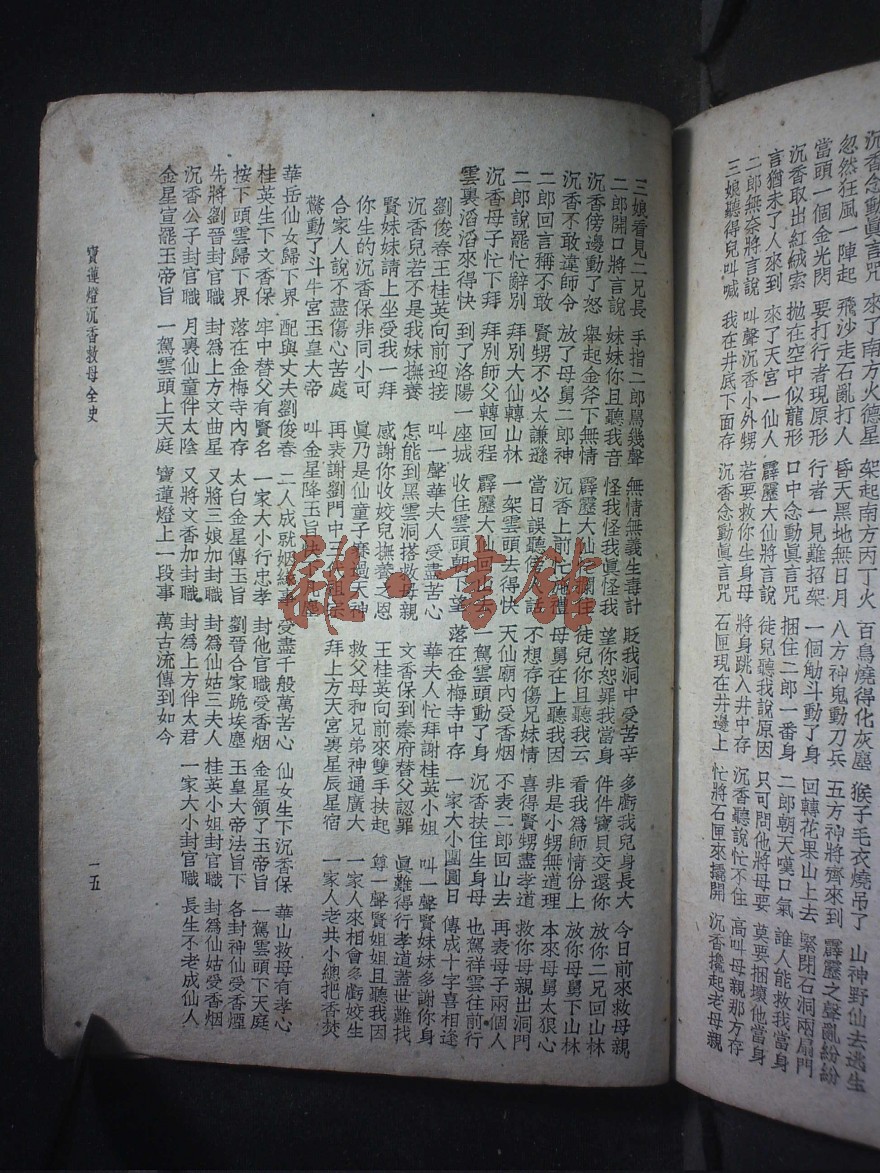 沉香念動眞言咒 來了南方火德星 架起南方丙丁火 百鳥燒得化灰塵 猴子毛衣燒吊了 山神野仙去逃生
忽然狂風一陣起 飛沙走石亂打人 昏天黑地無日月 八方神鬼動刀兵 五方神將齊來到 霹靂之聲亂紛紛
當頭一個金光閃 要打行者現原形 行者一見難招架 一個觔斗動了身 回轉花果山上去 緊閉石洞兩扇門
沉香取出紅絨索 拋在空中似龍形 口中念動眞言咒 捆住二郎一番身 二郎朝天嘆口氣 誰人能救我當身
言猶未了人來到 來了天宮一仙人 霹靂大仙將言說 徒兒聽我說原因 只可問他將母要 莫要捆壞他當身
二郎無奈將言說 叫聲沉香小外甥 若要救你生身母 將身跳入井中存 沉香聽說忙不住 高叫母親那方存
三娘聽得兒叫喊 我在井底下面存 沉香念動眞言咒 石匣現在井邊上 忙將石匣來撬開 沉香攙起老母親
三娘看見二兄長 手指二郎罵幾聲 無情無義生毒計 貶我洞中受苦辛 多虧我兒身長大 今日前來救母親
二郎開口將言說 妹妹你且聽我音 怪我怪我眞怪我 望你恕罪我當身 件件寶貝交還你 放你二兄回山林
沉香傍邊動了怒 舉起金斧下無情 霹靂大仙忙攔住 徒兒你且聽我云 看我為師情份上 放你母舅下山林
沉香不敢違師令 放了母舅二郎神 沉香上前忙施禮 母舅在上聽我因 非是小甥無道理 本來母舅太狠心
二郎回言稱不敢 賢甥不必太謙遜 當日誤聽傍人話 不想存傷兄妹情 喜得賢甥盡孝道 救你母親出洞門
二郎說罷忙辭別 拜別大仙轉山林 一架雲頭去得快 天仙廟內受香烟 不表二郎回山去 再表母子兩個人
沉香母子忙下拜 拜別師父轉回程 霹靂大仙回山去 一駕雲頭動了身 沉香扶住生身母 也駕祥雲往前行
雲裏滔滔來得快 到了洛陽一座城 收住雲頭朝下墜 落在金梅寺中存 一家大小團圓日 傳成十字喜相逢
劉俊春王桂英向前迎接 叫一聲華夫人受盡苦心 華夫人忙拜謝桂英小姐 叫一聲賢妹妹多謝你身
沉香兒若不是我妹撫養 怎能到黑雲洞搭救母親 文香保到秦府替父認罪 眞難得行孝道蓋世難找
賢妹妹請上坐受我一拜 感謝你收姣兒撫養之恩 王桂英向前來雙手扶起 尊一聲賢姐姐且聽我因
你生的沉香保非同小可 眞乃是仙童子賽過天神 救父母和兄弟神通廣大 一家人來相會多虧姣生
合家人說不盡傷心苦處 再表謝劉門中三代祖宗 拜上方天宮裏星辰星宿 一家人老共小總把香焚
驚動了斗牛宮玉皇大帝 叫金星降玉旨快下凡塵
華岳仙女歸下界 配與丈夫劉俊春 二人成就姻緣事 受盡千般萬苦心 仙女生下沉香保 華山救母有孝心
桂英生下文香保 牢中替父有賢名 一家大小行忠孝 封他官職受香烟 金星領了玉帝旨 一駕雲頭下天庭
按下頭雲歸下界 落在金梅寺內存 太白金星傳玉旨 劉晉合家跪埃塵 玉皇大帝法旨下 各封神仙受香煙
先將劉晉封官職 封為上方文曲星 又將三娘加封職 封爲仙姑三夫人 桂英小姐封官職 封爲仙姑受香烟
沉香公子封官職 月裏仙童伴太陰 又將文香加封職 封爲上方伴太君 一家大小封官職 長生不老成仙人
金星宣罷玉帝旨 一駕雲頭上天庭 寶蓮燈上一段事 萬古流傳到如今
寶蓮燈沉香救母全史
一五
雜·書館